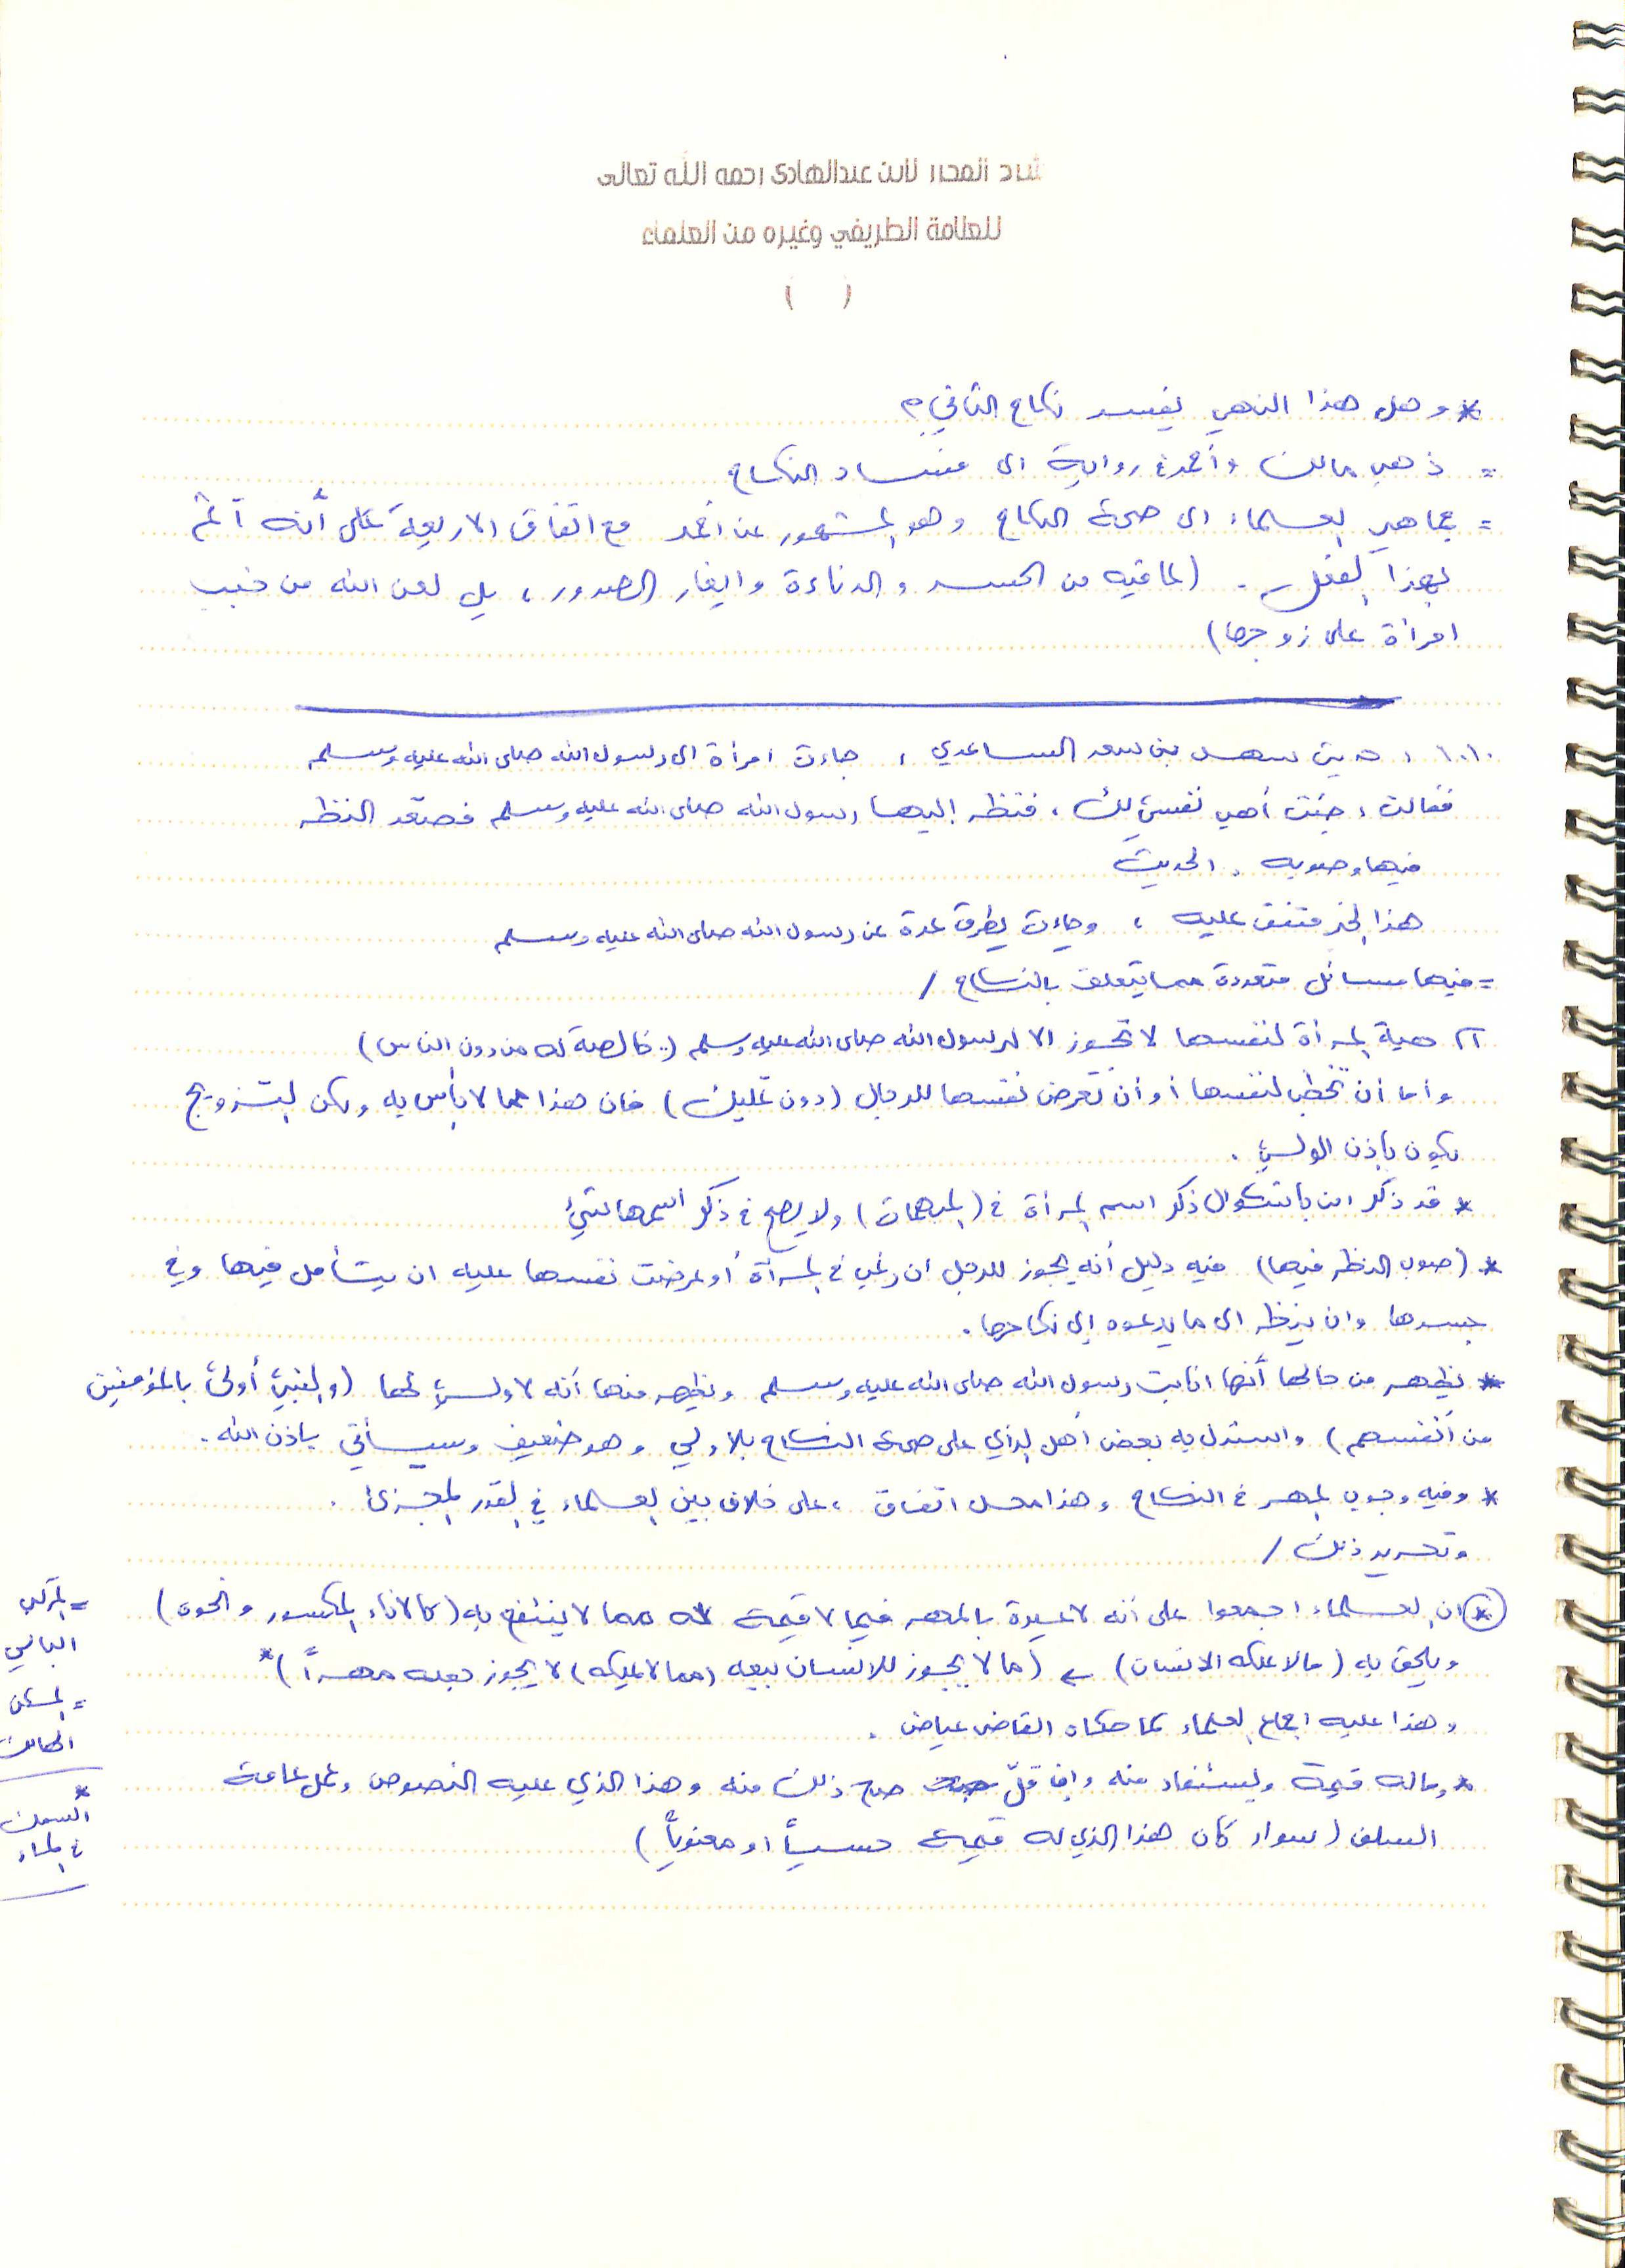 شرح المحرر لابن عبدالهادي رحمه الله تعالى
للعلامة الطريفي وغيره من العلماء
(   )
* وهل هذا النهي يفسد نكاح الثاني؟
= ذهب مالك وأحمد في رواية الى فساد النكاح
= جماهير العلماء الى صحة النكاح وهو المشهور عن احمد مع اتفاق الاربعة على أنه آثم
بهذا الفعل . (لما فيه من الحسد والدناءة وايغار الصدور ، بل لعن الله من خبب
امرأة على زوجها)
١٠١٠ ، حديث سهل بن سعد الساعدي ، جاءت امرأة الى رسول الله صلى الله عليه وسلم
فقالت ، جئت أهب نفسي لك ، فنظر إليها رسول الله صلى الله عليه وسلم فصعّد النظر
فيها وصوبه . الحديث
هذا الخبر متفق عليه ، وجاءت بطرق عدة عن رسول الله صلى الله عليه وسلم
= فيها مسائل متعددة مما يتعلق بالنكاح /
١] هبة المرأة لنفسها لا تجوز الا لرسول الله صلى الله عليه وسلم (.. خالصة له من دون الناس)
وأما أن تخطب لنفسها أو أن تعرض نفسها للرجال (دون تمليك) فان هذا مما لا بأس به ولكن التزويج
يكون باذن الولي .
* قد ذكر ابن بشكوال ذكر اسم المرأة في (المبهمات) ولا يصح في ذكر اسمها شيء
* (صوب النظر فيها) فيه دليل أنه يجوز للرجل ان رغب في المرأة أو عرضت نفسها عليه ان يتأمل فيها وفي
جسدها وان ينظر الى ما يدعوه إلى نكاحها .
* يظهر من حالها أنها انابت رسول الله صلى الله عليه وسلم ويظهر منها أنه لا ولي لها (والنبي أولى بالمؤمنين
من أنفسهم) واستدل به بعض أهل الرأي على صحة النكاح بلا ولي وهو ضعيف وسيأتي باذن الله .
* وفيه وجوب المهر في النكاح وهذا محل اتفاق ، على خلاف بين العلماء في القدر المجزئ .
وتحرير ذلك /
* ان العلماء اجمعوا على أنه لا عبرة بالمهر فيما لا قيمة له مما لا ينتفع به (كالاناء المكسور ونحوه)
ويلحق به (ما لا يملكه الانسان) ← (ما لا يجوز للانسان بيعه (مما لا يملكه) لا يجوز جعله مهراً) *
وهذا عليه اجماع العلماء كما حكاه القاضي عياض .
* وماله قيمة ويستفاد منه وإن قلّ صح ذلك منه وهذا الذي عليه النصوص وعمل عامة
السلف (سواء كان هذا الذي له قيمة حسياً او معنوياً)
= المركب
= المسكن
* السمك
في الماء